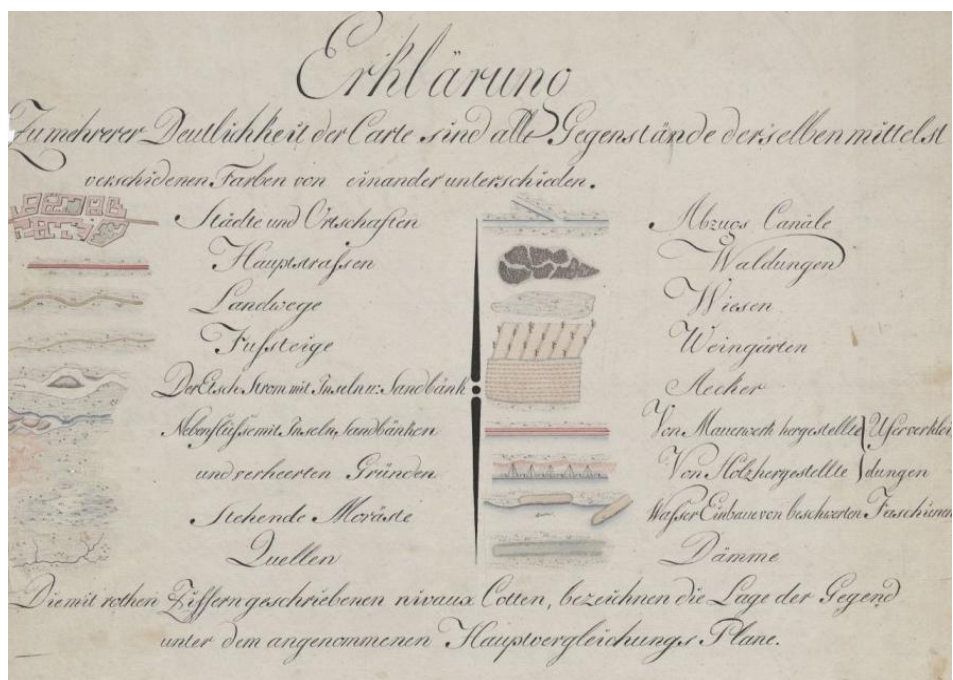 Erklärung
Zu mehrerer Deutlichkeit der Carte sind alle Gegenstände derselben mittelst
verschidenen Farben von einander unterschieden.
Städte und Ortschaften
Hauptstrassen
Landwege
Fußsteige
Der Etsch Strom mit Inseln u: Sandbänk
Nebenflüße mit Inseln, Sandbänken
und verheerten Gründen
Stehende Moräste
Quellen
Abzugs Canäle
Waldungen
Wiesen
Weingärten
Aecher
Von Mauerwerk hergestellte } Uferverklei
Von Holz hergestellte } dungen
Waßer Einbaue von beschwerten Faschienen
Dämme
Die mit rothen Ziffern geschriebenen nivaux Cotten, bezeichnen die Lage der Gegend
unter dem angenommenen Hauptvergleichungs Plane.